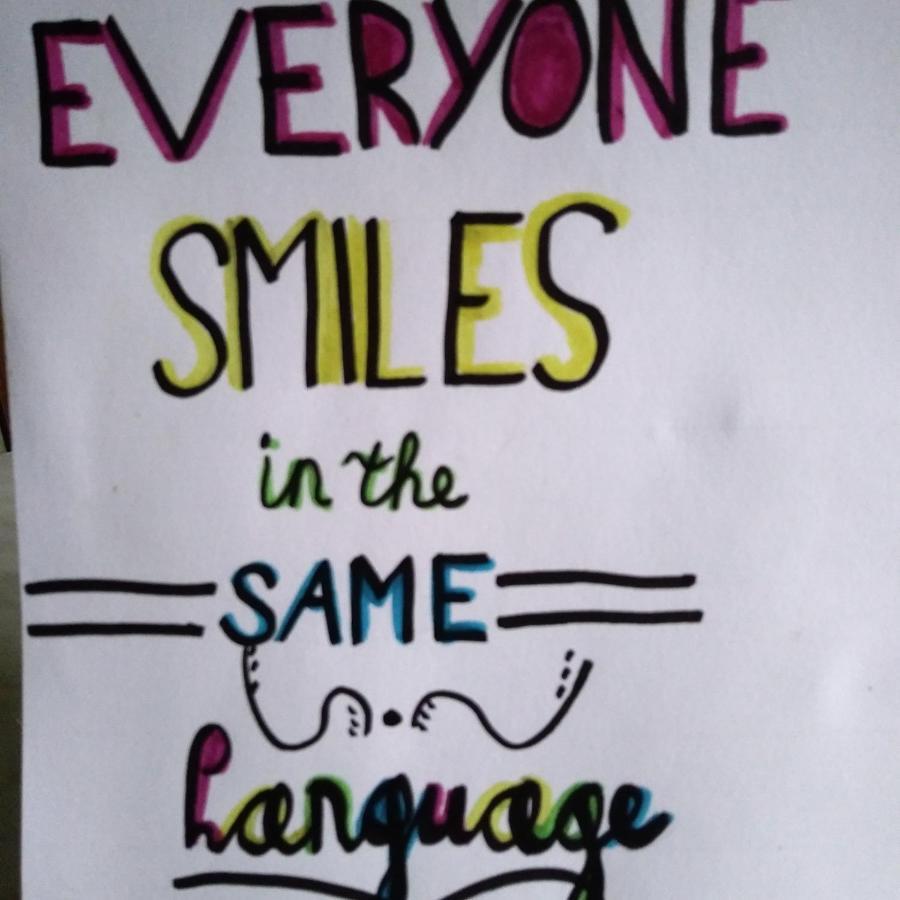 EVERYONE
SMILES
in the
SAME
Language